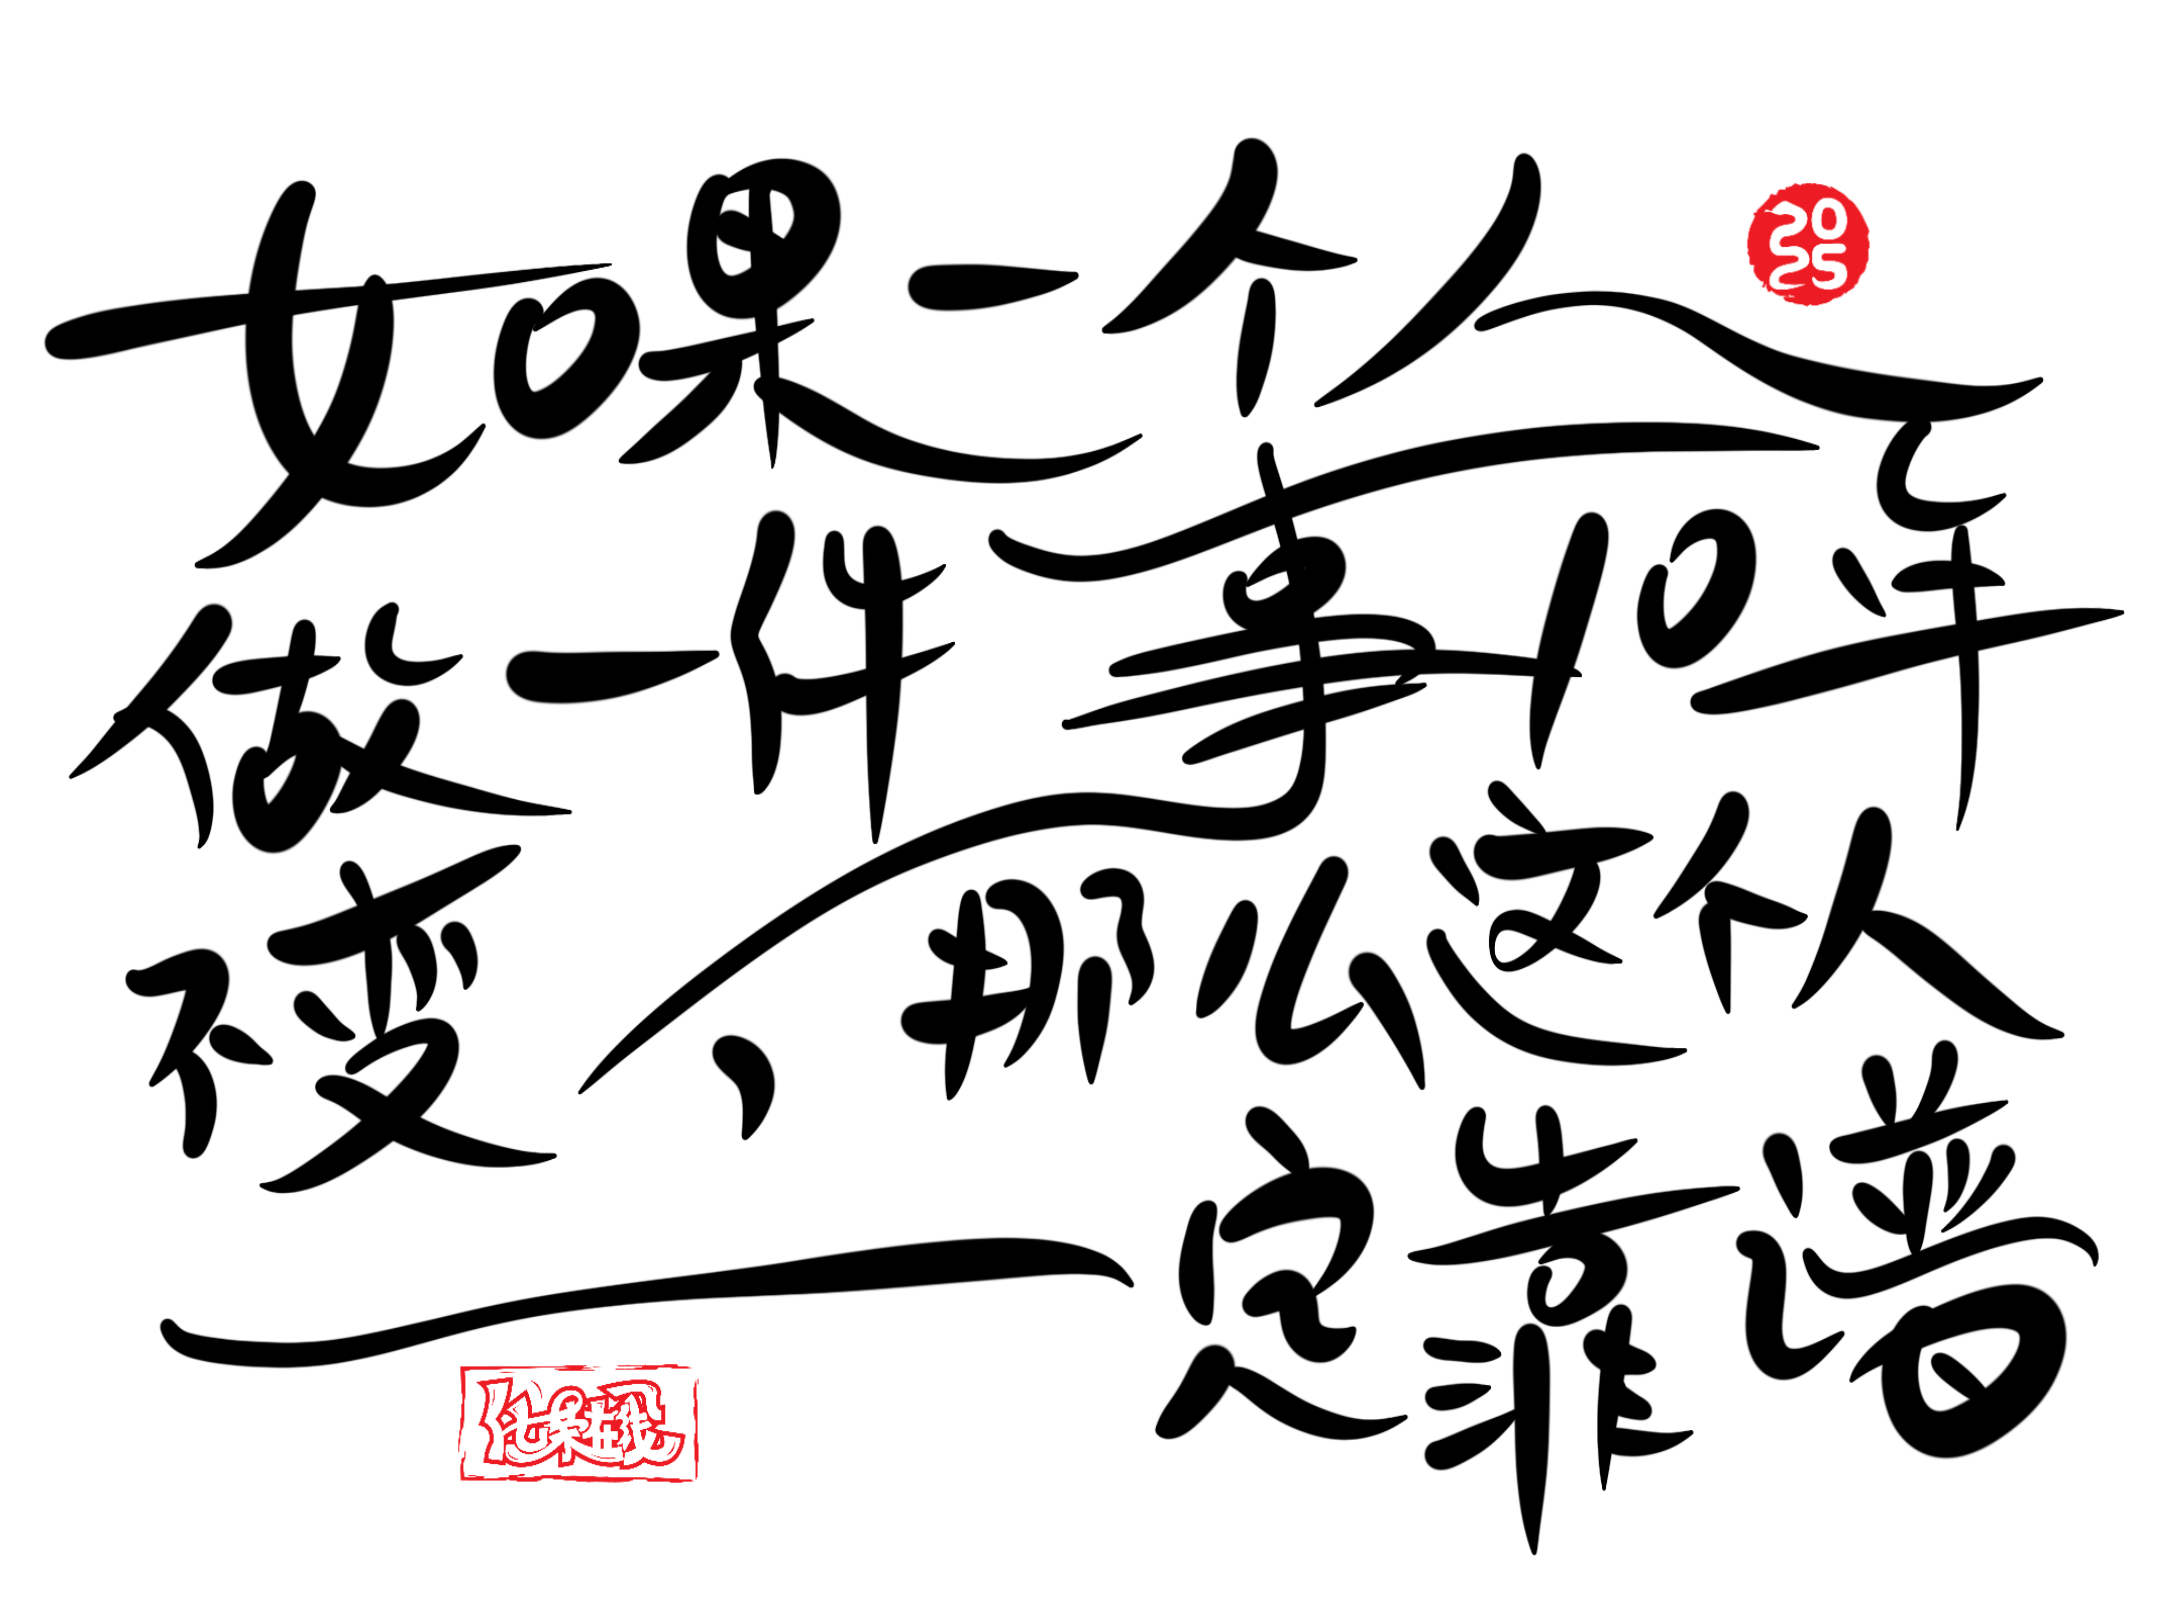 如果一个人
2025
做一件事10年
不变，那么这个人
一定靠谱